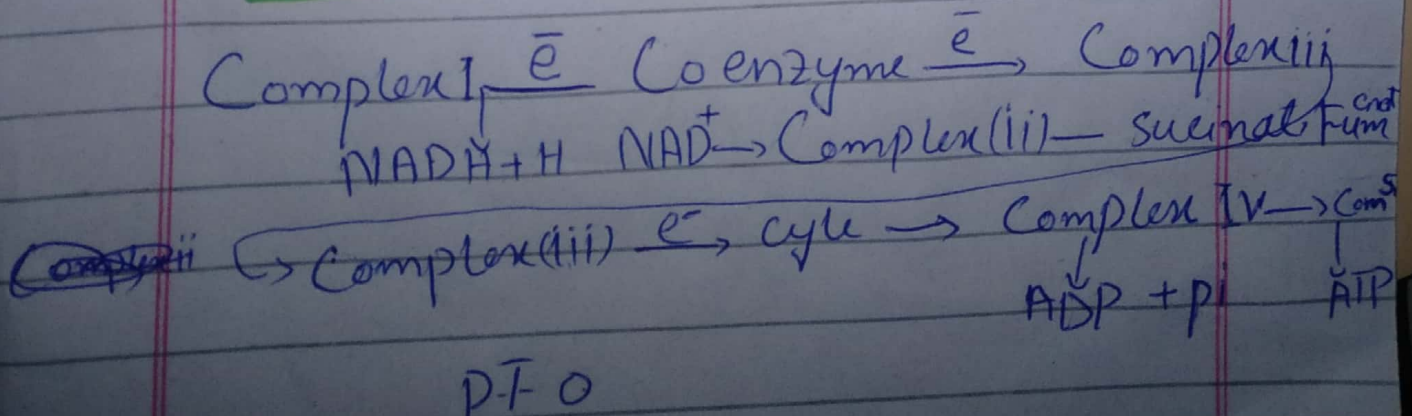 Complex I e̅ Coenzyme e̅ → Complex iii
NADH + H NAD⁺ → Complex (ii) — sucinat Fum
Complex (iii) e⁻ → cyu → Complex IV → Com 5
ADP + pi ATP
P T O